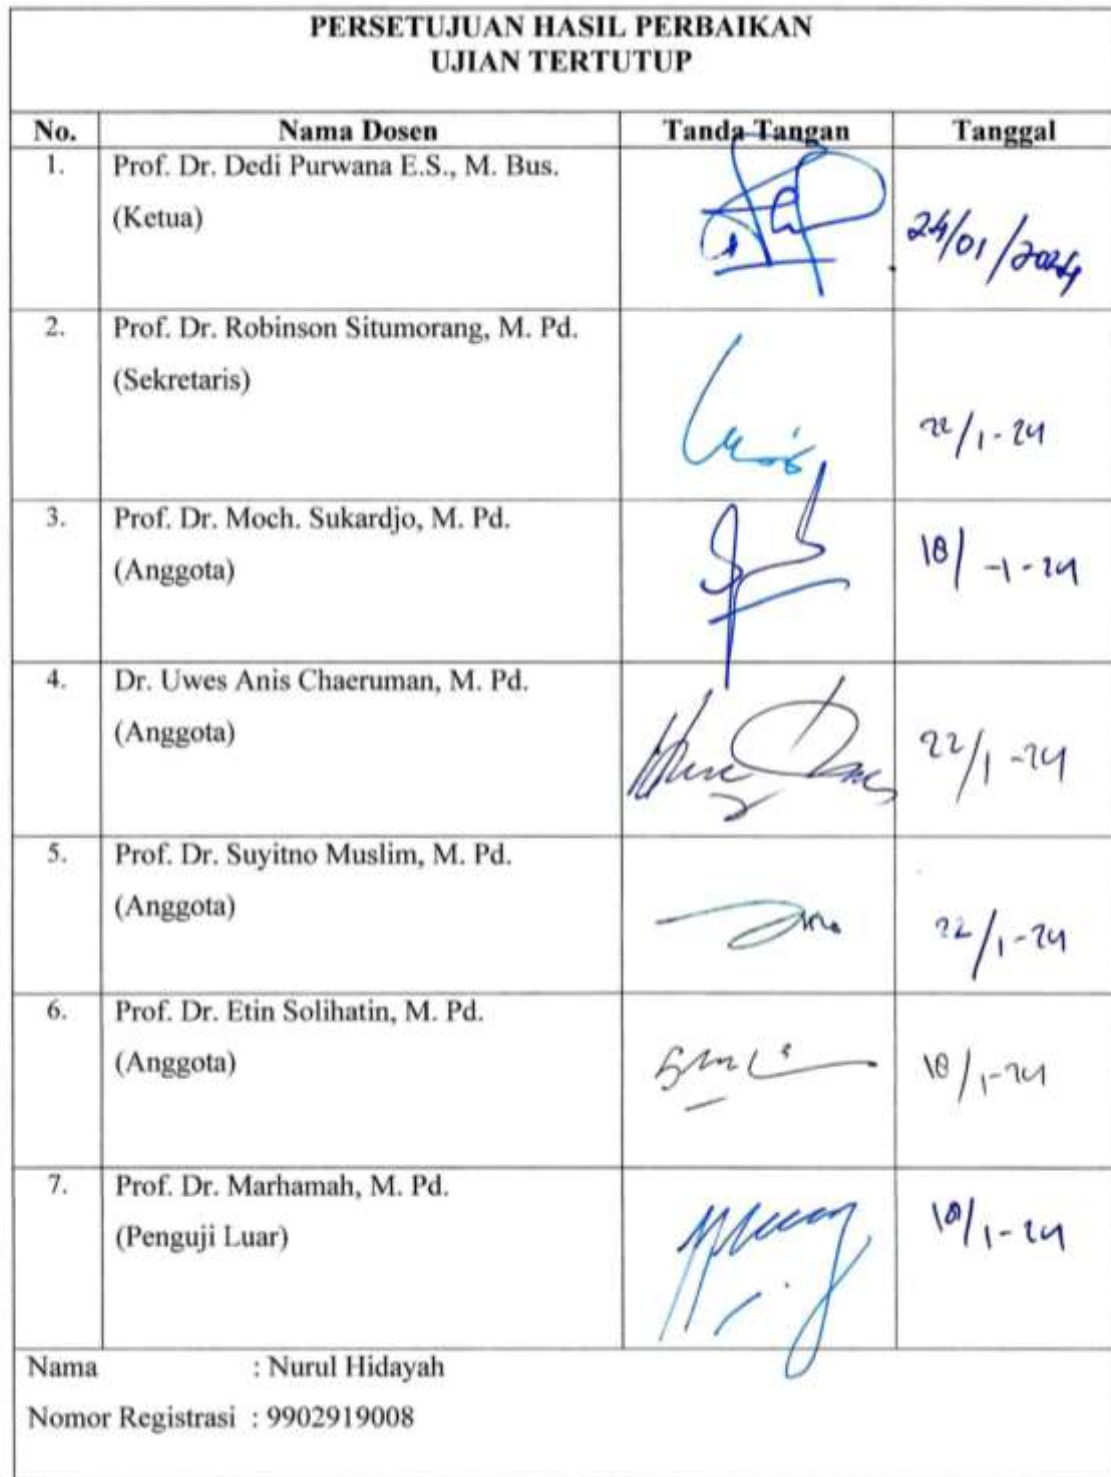 PERSETUJUAN HASIL PERBAIKAN
UJIAN TERTUTUP
No. Nama Dosen Tanda Tangan Tanggal
1. Prof. Dr. Dedi Purwana E.S., M. Bus.
(Ketua)
24/01/2024
2. Prof. Dr. Robinson Situmorang, M. Pd.
(Sekretaris)
22/1-24
3. Prof. Dr. Moch. Sukardjo, M. Pd.
(Anggota)
18/-1-24
4. Dr. Uwes Anis Chaeruman, M. Pd.
(Anggota)
22/1-24
5. Prof. Dr. Suyitno Muslim, M. Pd.
(Anggota)
22/1-24
6. Prof. Dr. Etin Solihatin, M. Pd.
(Anggota)
18/1-24
7. Prof. Dr. Marhamah, M. Pd.
(Penguji Luar)
18/1-24
Nama : Nurul Hidayah
Nomor Registrasi : 9902919008